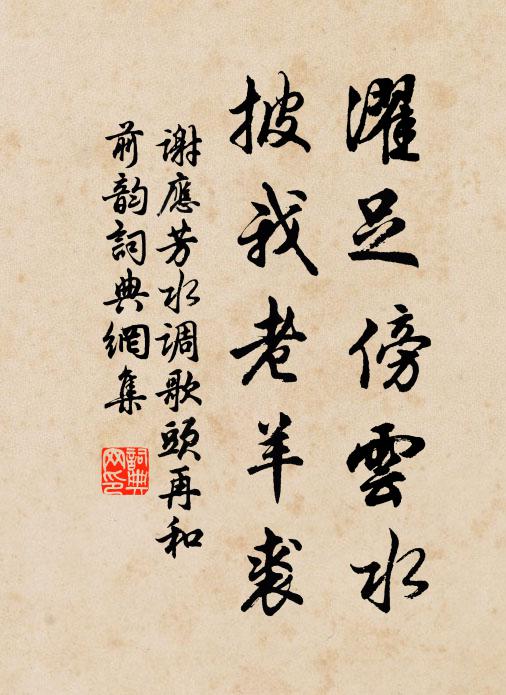 濯足傍雲水
披我老羊裘
謝應芳水调歌頭再和
前韵詞典網集
詞典网印